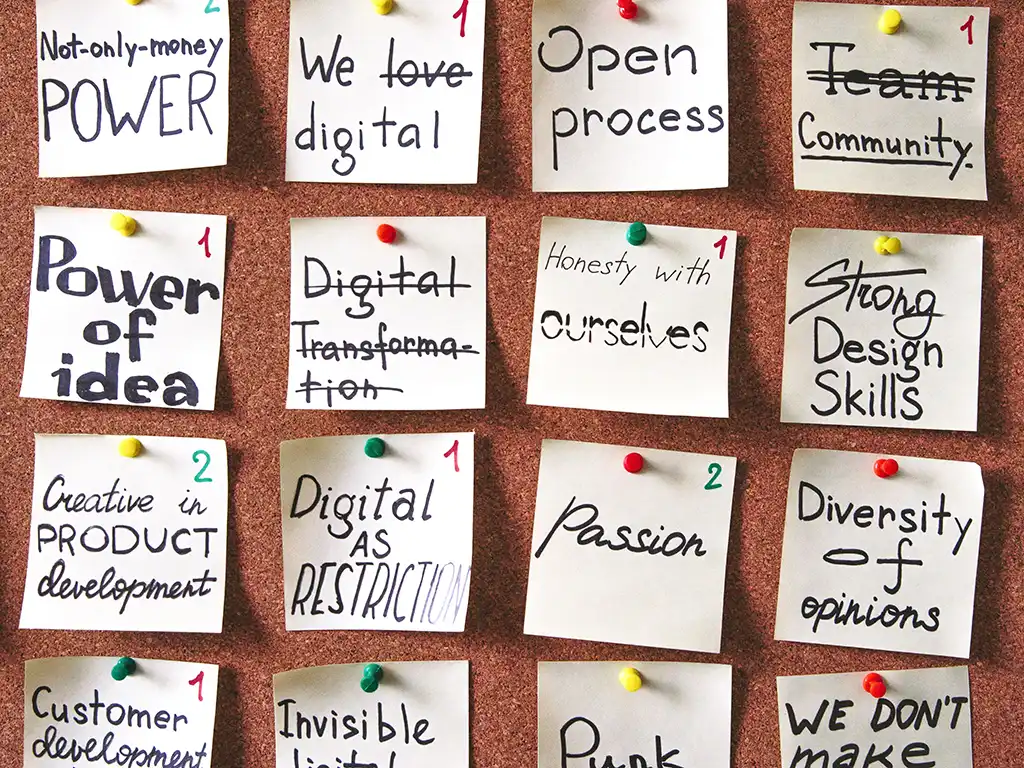 2
Not-only-money
POWER
1
We love
digital
Open
process
1
Team
Community.
1
Power
of
idea
Digital
Transforma-
tion
1
Honesty with
ourselves
Strong
Design
Skills
2
Creative in
PRODUCT
development
1
Digital
AS
RESTRICTION
2
Passion
Diversity
of
opinions
1
Customer
development
Invisible
digital
Punk
WE DON'T
make